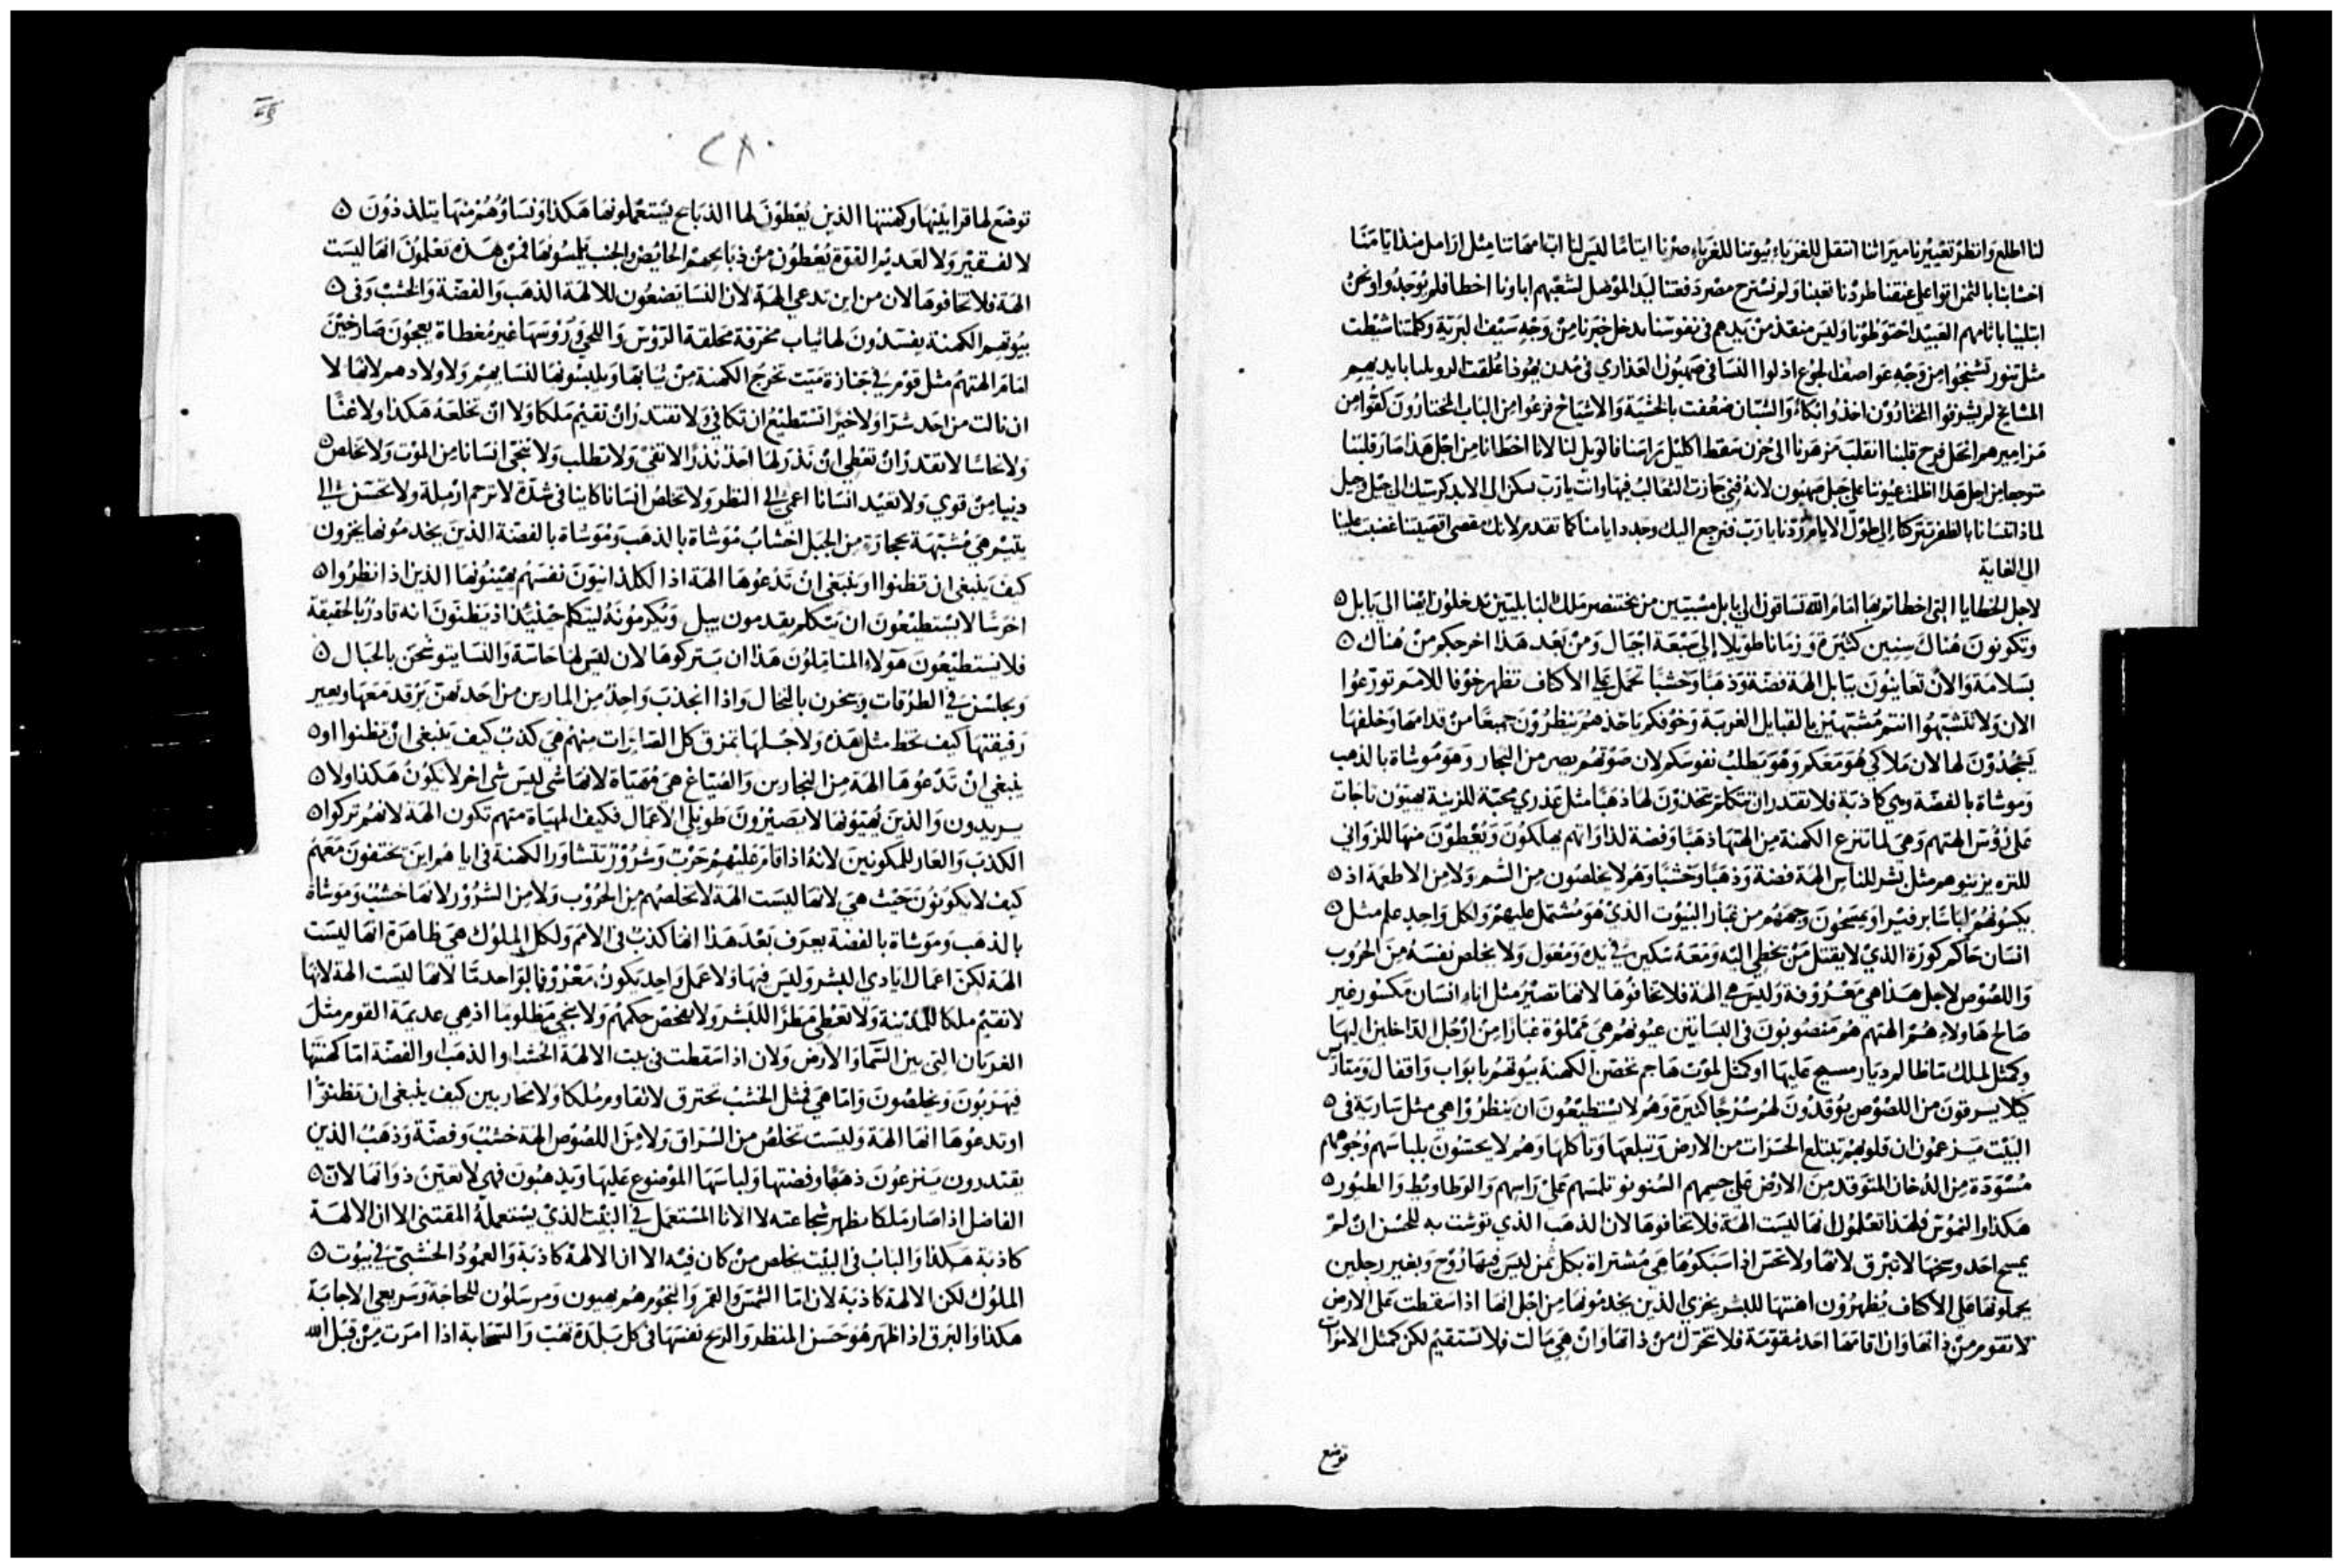 لنا اطلع وانظر تعييرنا ميراثنا انتقل للغرباء بيوتنا للغرباء صرنا ايتامًا ليس لنا اب امهاتنا مثل ارامل منذ ايامنا
اخشابنا بالثمن اتوا علي عنقنا طردنا تعبنا ولم نسترح مصر دفعتنا ليد الموصل لشبعهم اباونا اخطا فلم يوجدوا ونحن
ابتلينا باثامهم العبيد احتوطونا وليس منقذ من يدهم في نفوسنا ندخل خبزنا من وجه سيف البرية وكلتنا شيطت
مثل تنور تشنجوا من وجه عواصف الجوع اذلوا النسا في صهيون العذاري في مدن يهوذا علقت الروسا بايديهم
المشايخ لم يشرفوا المختارون اخذوا بكاء والشبان ضعفت بالخشبة والاشياخ فرغوا من الباب المختارون كفوا من
مزاميرهم انحل فرح قلبنا انقلب مزهرنا الى حزن سقط اكليل راسنا فالويل لنا لانا اخطانا من اجل هذا صار قلبنا
متوجعا من اجل هذا اظلمت عيوننا علي جبل صهيون لانه فني جازت الثعالب فيها وانت يارب تسكن الى الابد كرسيك الى جيل وجيل
لماذا تنسانا بالظفر تتركنا الى طول الايام ردنا يارب فنرجع اليك وجدد ايامنا كما تقدم لانك مقصى اقصيتنا غضبت علينا
الى الغاية
لاجل الخطايا التي اخطاتم بها امام الله تساقون الى بابل مسبيين من بختنصر ملك البابليين تدخلون ايضا الى بابل ٥
وتكونون هناك سنين كثيرة وزمانا طويلا الى سبعة اجيال ومن بعد هذا اخرجكم من هناك ٥
بسلامة والان تعاينون ببابل الهة فضة وذهبا وخشبا تحمل علي الاكتاف تظهر خوفا للامم تورعوا
الان ولا تتشبهوا انتم مشتبهين بالقبايل الغريبة وخوفكم ياخذهم ينظرون جميعا من قدامها وخلفها
يسجدون لها لان ملاكي هو معكم وهو يطلب نفوسكم لان صوتهم يصر من النجار وهو موشاة بالذهب
وموشاة بالفضة وهي كاذبة فلا تقدر ان تتكلم تتخذون لها ذهبا مثل عذري محبة للزينة يهيون تاجات
علي روس الهتهم وهي لما تنزع الكهنة من الهتها ذهبا وفضة لذواتهم يهلكون ويعطون منها للزواني
للتره يزينوهم مثل بشر للناس الهة فضة وذهبا وخشبا وهم لا يخلصون من الشم ولا من الاطعمة اذ ٥
يكسونهم لباسا برفيرا ويمسحون وجههم من غبار البيوت الذي هو مشتمل عليهم ولكل واحد علم مثل ٥
انسان حاكم كورة الذي لا يقتل من يخطي اليه ومعه سكين في يده ومعول ولا يخلص نفسه من الحروب
واللصوص لاجل هذا هي معروفة وليس هي الهة فلا تخافوها لانها تصير مثل اناء انسان مكسور غير
صالح هاولاء هم الهتهم هم منصوبون في البساتين عيونهم هي مملوة غبارا من ارجل الداخلين اليها
وكمثل لملك ما ظالم ديار مسيج عليها او كمثل لموت هاجم تحصن الكهنة بيوتهم بابواب واقفال ومتارس
كيلا يسرقون من اللصوص يوقدون لهم سرجا كثيرة وهم لا يستطيعون ان ينظروا هي مثل سارية في ٥
البيت يزعمون ان قلوبهم يبتلع الحشرات من الارض وتبلعها وتاكلها وهم لا يحسون بلباسهم وجوههم
مسودة من الدخان المتوقد من الارض علي جسمهم السنونو تلمسهم علي راسهم والوطاويط والطيور ٥
هكذا والنموس فلهذا تعلمون انها ليست الهة فلا تخافوها لان الذهب الذي توشت به للحسن ان لم
يمسح احد وسخها لا تبرق لانها ولا تحس اذا سبكوها هي مشتراة بكل ثمن ليس فيها روح وبغير رجلين
يحملونها علي الاكتاف يظهرون اهنتها للبشر يخزي الذين يخدمونها من اجل انها اذا سقطت علي الارض
لا تقوم من ذاتها وان اقامها احد مقوسة فلا تتحرك من ذاتها وان هي مالت فلا تستقيم لكن كمثل الاموات
توضع
٢٨
توضع لها قرابينها وكهنتها الذين يعطون لها الذبايح يستعملونها هكذا ونساوهم منها يتلذذون ٥
لا لفقير ولا لعديم القوة يعطون من ذبايحهم الحايض والجنب يلمسونها فمن هذه تعلمون انها ليست
الهة فلا تخافوها لان من اين تدعي الهة لان النسا يضعون للالهة الذهب والفضة والخشب وفى ٥
بيوتهم الكهنة يفسدون لها ثياب مخرقة محلقة الروس واللحي وروسها غير مغطاة يعجون صارخين
امام الهتهم مثل قوم في جنازة ميت تخرج الكهنة من ثيابها ويلبسونها لنسايهم ولاولادهم لانها لا
ان نالت من احد شرا ولا خيرا تستطيع ان تكافي ولا تقتدر ان تقيم ملكا ولا ان تخلعه هكذا ولا غنًا
ولا نحاسا لا تقدر ان تعطي ان نذر لها احد نذرًا لا تفي ولا تطلب ولا تنجي انسانا من الموت ولا تخلص ٥
دنيا من قوي ولا تعيد انسانا اعمي الى النظر ولا تخلص انسانا كاينا في شدة لا ترحم ارملة ولا تحسن الى
يتيم هي مشتبهة بحجارة من الجبل اخشاب موشاة بالذهب وموشاة بالفضة الذين يخدمونها يخزون
كيف ينبغي ان تظنوا او ينبغي ان تدعوها الهة اذ الكلدانيون نفسهم يهينونها الذين اذ انظروا ٥
اخرسا لا يستطيعون ان يتكلم يقدمون بيل ويكرمونه ليتكلم حينئذ اذ يظنون انه قادر بالحقيقة
فلا يستطيعون هولاء المتاملون هذا ان يتركوها لان ليس لها حاسة والنسا يتوشحن بالحبال ٥
ويجلسن في الطرقات ويبخرن بالنخال واذا انجذب واحدة من المارين من احد لهن يرقد معها ويعير
رفيقتها كيف تحط مثل هذه ولا حبلها تمزق كل الصايرات منهم هي كذب كيف ينبغي ان تظنوا او ٥
ينبغي ان تدعوها الهة من النجارين والصياغ هي مهياة لانها شي ليس شي اخر لا يكون هكذا ولا ٥
يريدون والذين يهيونها لا يصيرون طويلي الاعمال فكيف المهياة منهم تكون الهة لانهم تركوا ٥
الكذب والعار للمكونين لانه اذا قام عليهم حرب وشرور تتشاور الكهنة في ايا هم اين يختفون معهم
كيف لا يكونون حيث هي لانها ليست الهة لا تخلصهم من الحروب ولا من الشرور لانها خشب وموشاة
بالذهب وموشاة بالفضة يعرف بعد هذا انها كذب في الامم ولكل الملوك هي ظاهرة انها ليست
الهة لكن اعمال ايادي البشر وليس فيها ولا عمل واحد يكون معروفا لواحد ما لانها ليست الهة لانها
لا تقيم ملكا للمدينة ولا تعطي مطرًا للبشر ولا تفحص حكمهم ولا تنجي مظلوما اذ هي عديمة القوم مثل
الغربان التي بين السما والارض ولان اذا سقطت في بيت الالهة الخشب او الذهب او الفضة اما كهنتها
فيهربون ويخلصون واما هي فمثل الخشب تحترق لا تقاوم ملكا ولا محاربين كيف ينبغي ان تظنوا
او تدعوها انها الهة وليست تخلص من السراق ولا من اللصوص الهة خشب وفضة وذهب الذين
يقتدرون ينزعون ذهبها وفضتها ولباسها الموضوع عليها ويذهبون فهي لا تعين ذواتها لان ٥
الفاضل اذا صار ملكا يظهر شجاعته لا الانا المستعمل في البيت الذي يستعمله المقتني الا ان الالهة
كاذبة هكذا والباب في البيت يخلص من كان فيه الا ان الالهة كاذبة والعمود الخشبي في بيوت ٥
الملوك لكن الالهة كاذبة لان اما الشمس والقمر والنجوم هم بهيون ومرسلون للحاجة وسريعي الاجابة
هكذا والبرق اذا ظهر هو حسن المنظر والريح نفسها في كل بلدة تهب والسحابة اذا امرت من قبل الله